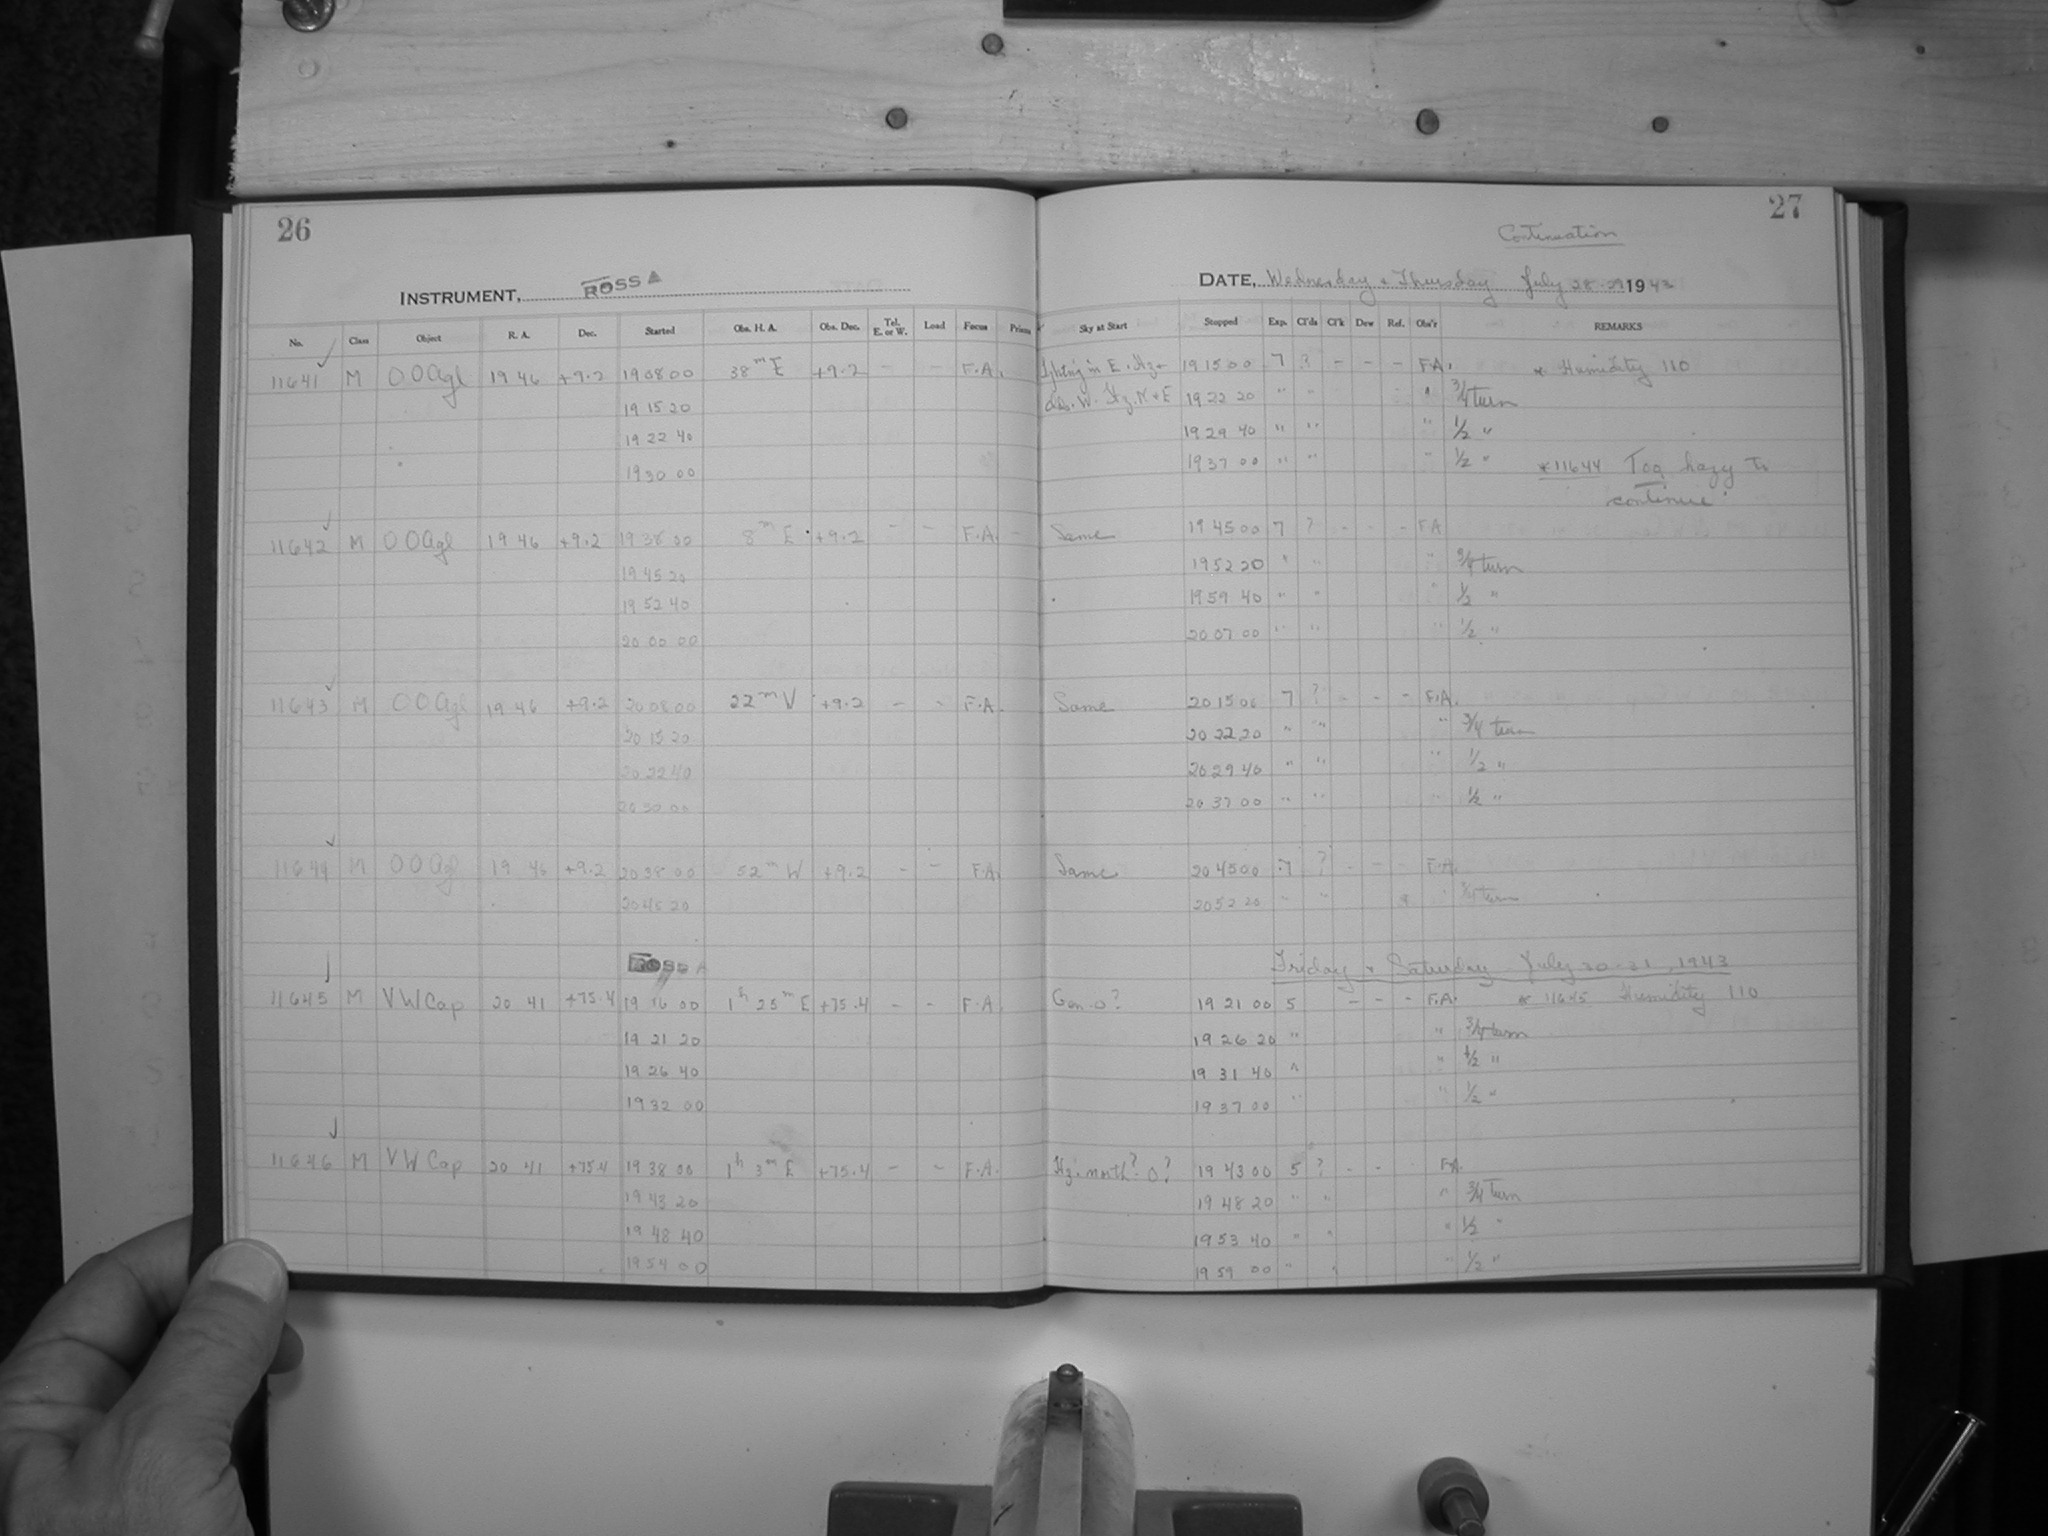 26
27
Continuation
INSTRUMENT, ROSS A
DATE, Wednesday & Thursday July 28-29 1943
No. Class Object R. A. Dec. Started Obs. H. A. Obs. Dec. Tel. E. or W. Load Focus Prisms Sky at Start Stopped Exp. Cl'ds Cl'k Dew Ref. Obs'r REMARKS
11641 M OO Aql 19 46 +9.2 19 08 00 38m E +9.2 - - F.A. in E. Hz 19 15 00 7 ? - - - F.A. * Humidity 110
19 15 20 W. Hz. N & E 19 22 20 " " " 3/4 turn
19 22 40 19 29 40 " " " 1/2 "
19 30 00 19 37 00 " " " 1/2 " *11644 Too hazy to
continue
11642 M OO Aql 19 46 +9.2 19 38 00 8m E +9.2 - - F.A. - Same 19 45 00 7 ? - - - F.A
19 45 20 19 52 20 " " " 3/4 turn
19 52 40 19 59 40 " " " 1/2 "
20 00 00 20 07 00 " " " 1/2 "
11643 M OO Aql 19 46 +9.2 20 08 00 22m W +9.2 - - F.A. Same 20 15 00 7 ? - - - F.A.
20 15 20 20 22 20 " " " 3/4 turn
20 22 40 20 29 40 " " " 1/2 "
20 30 00 20 37 00 " " " 1/2 "
11644 M OO Aql 19 46 +9.2 20 38 00 52m W +9.2 - - F.A. Same 20 45 00 7 ? - - - F.A.
20 45 20 20 52 20 " " * " 3/4 turn
ROSS A Friday & Saturday July 30-31, 1943
11645 M VW Cep 20 41 +75.4 19 16 00 1h 25m E +75.4 - - F.A. Gen. 0? 19 21 00 5 - - - F.A. * 11645 Humidity 110
19 21 20 19 26 20 " " 3/4 turn
19 26 40 19 31 40 " " 1/2 "
19 32 00 19 37 00 " " 1/2 "
11646 M VW Cep 20 41 +75.4 19 38 00 1h 3m E +75.4 - - F.A. Hz. north? 0? 19 43 00 5 ? - - - F.A.
19 43 20 19 48 20 " " " 3/4 Turn
19 48 40 19 53 40 " " " 1/2 "
19 54 00 19 59 00 " " " 1/2 "